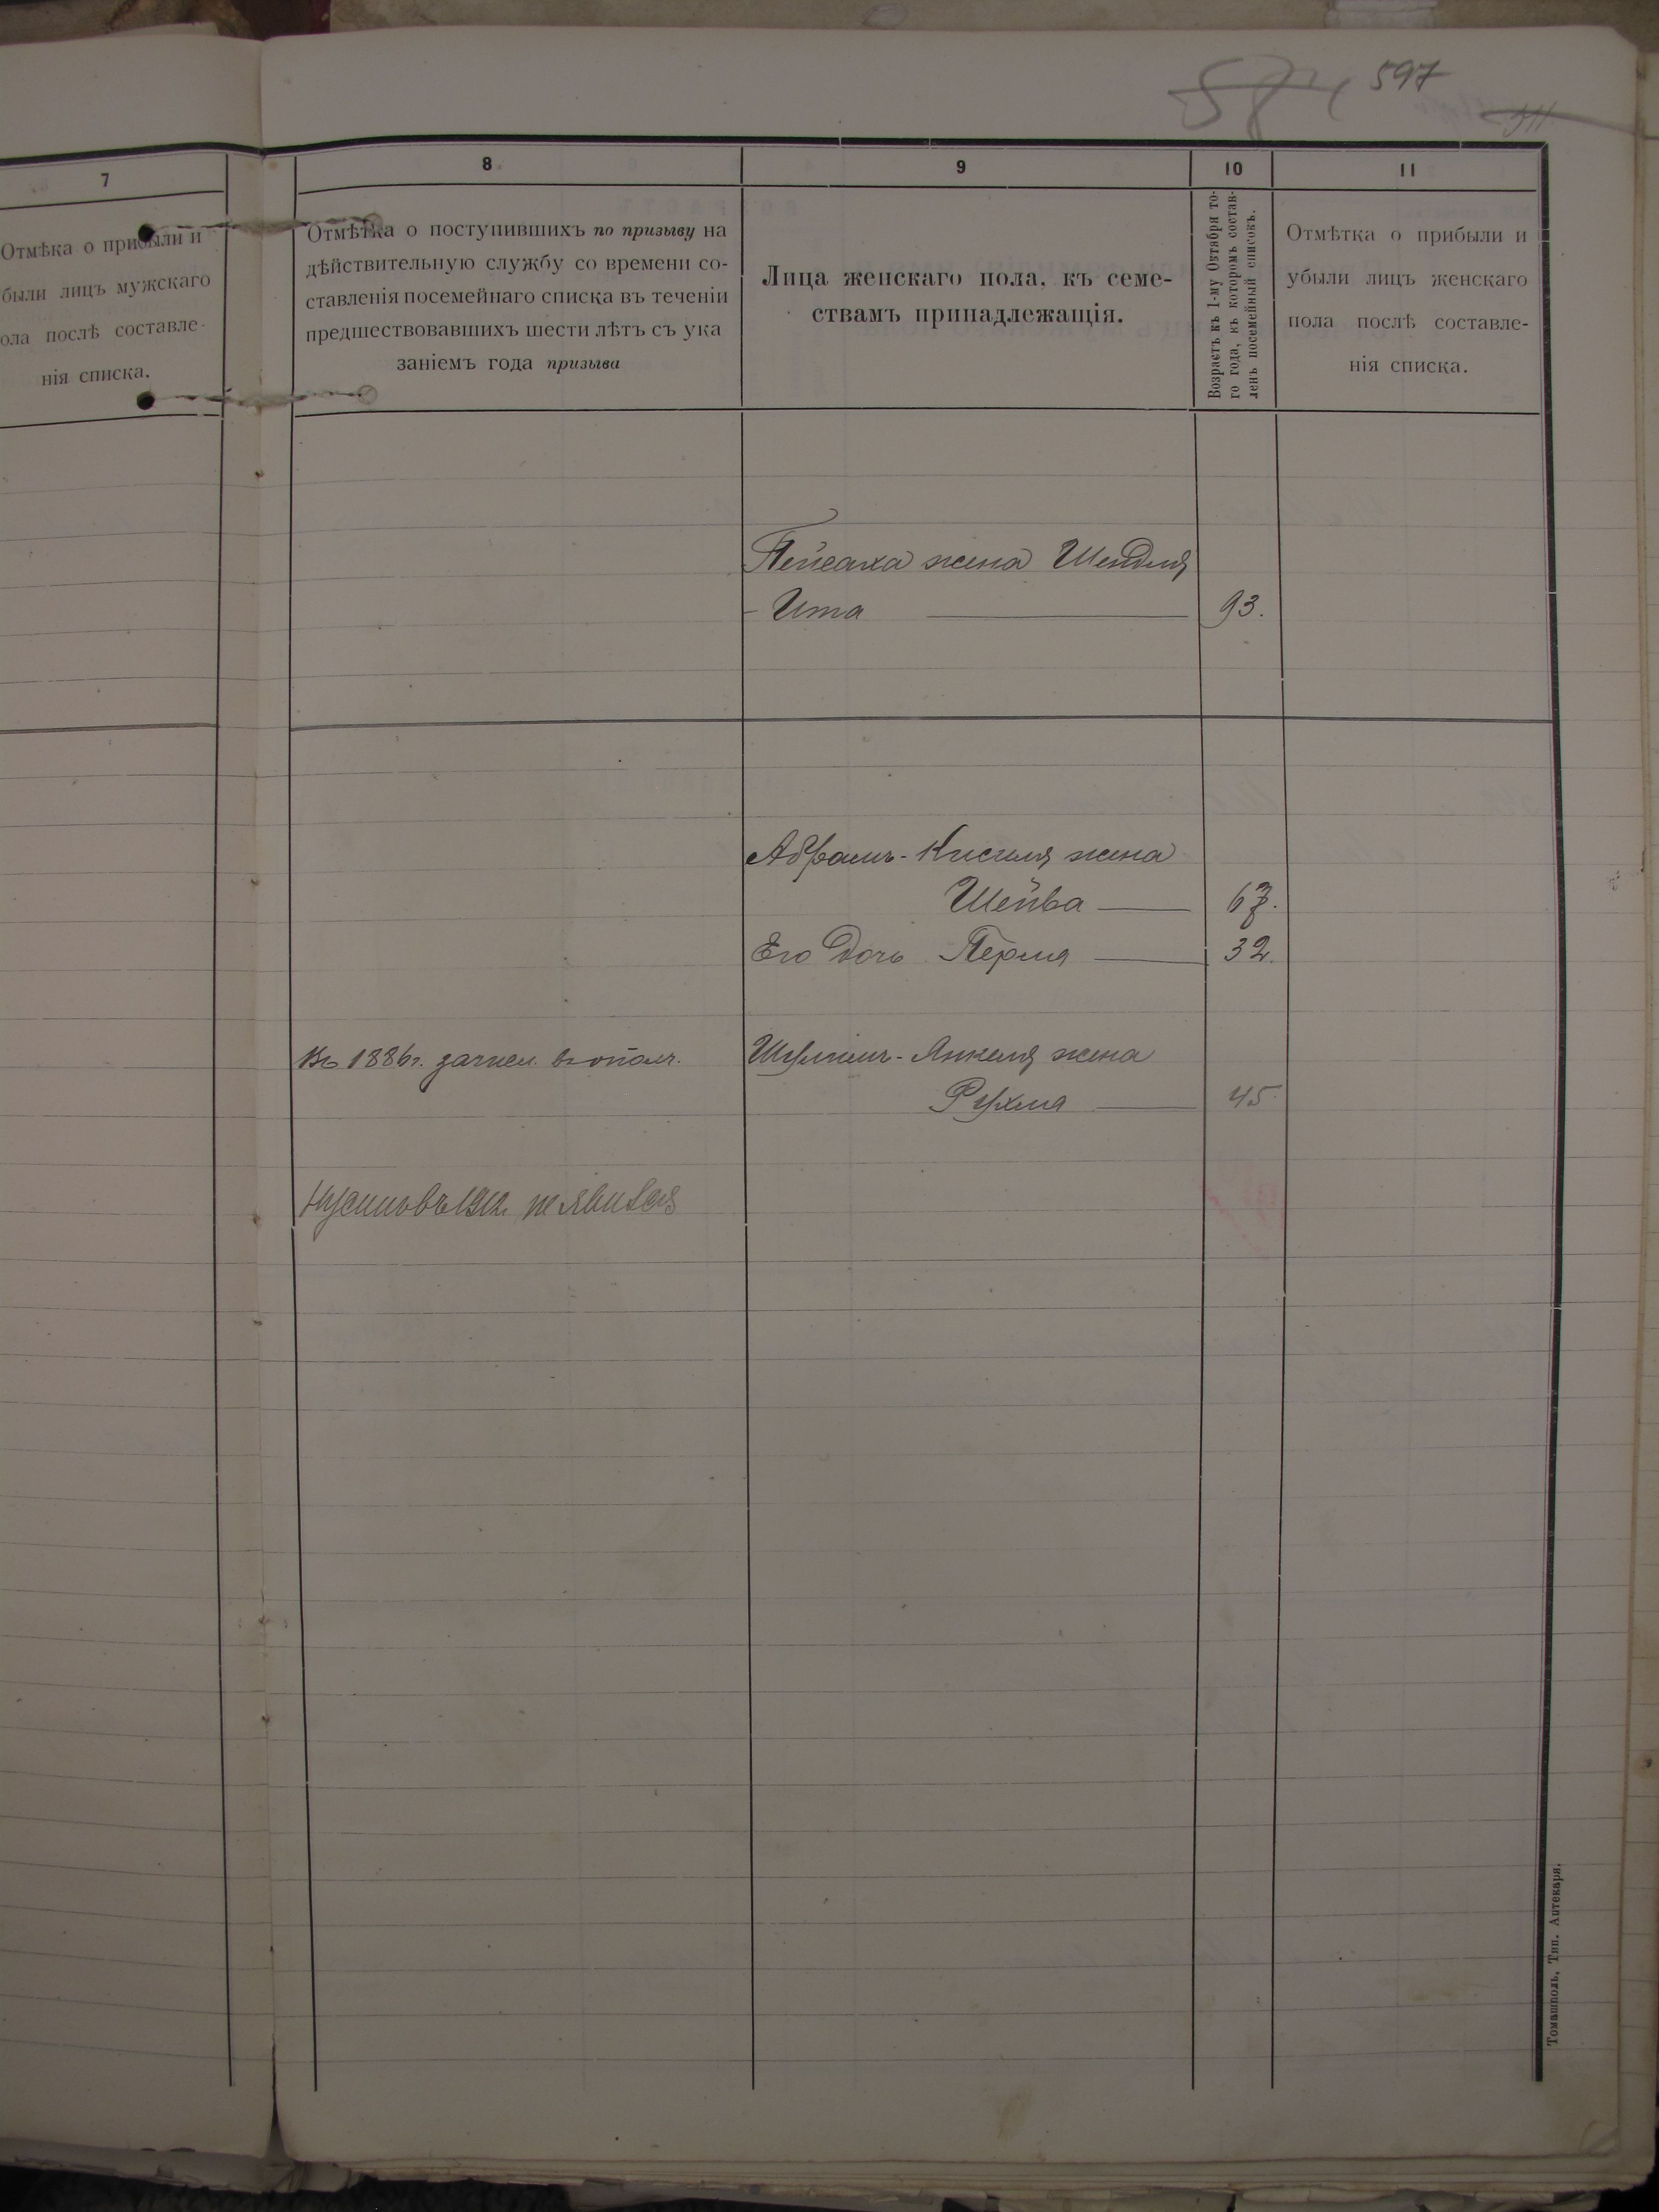 597
7
8
9
10
11
Отмѣка о прибыли и
были лицъ мужскаго
ола послѣ составле-
нія списка.
Отмѣтка о поступившихъ по призыву на
дѣйствительную службу со времени со-
ставленія посемейнаго списка въ теченіи
предшествовавшихъ шести лѣтъ съ ука
заніемъ года призыва
Лица женскаго пола, къ семе-
ствамъ принадлежащія.
Возрастъ къ 1-му Октября то-
го года, къ которомъ состав-
ленъ посемейный списокъ.
Отмѣтка о прибыли и
убыли лицъ женскаго
пола послѣ составле-
нія списка.
Пейсаха жена Шендля
Ита 93.
Абрамъ-Кисиля жена
Шейва 67.
Его дочь Перля 32.
Въ 1886г. зачисл. въ ополч.
Шулимъ-Янкеля жена
Рухля 45
не явился
Томашполь, Тип. Аптекаря.